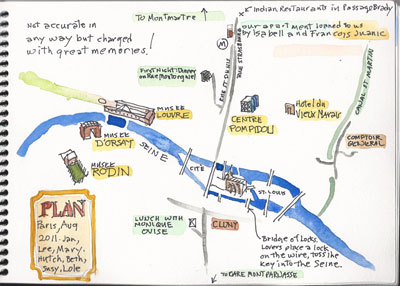 Not accurate in
any way but charged
with great memories!
To Montmartre
Indian Restaurants in Passage Brady
our apartment loaned to us
by Isabell and François Juanic
M
Rue St Denis
Rue Strasbourg
First Night Dinner
on Rue Montorgueil
Canal St Martin
Musée
Louvre
Centre
Pompidou
Hotel du
Vieux Marais
Comptoir
General
Musée
D'Orsay
Seine
Musée
Rodin
Cité
St. Louis
PLAN
Paris, Aug
2011. Jan,
Lee, Mary.
Hutch, Beth,
Susy, Lole
Lunch with
Monique
Ovise
Cluny
Bridge of Locks.
Lovers place a lock
on the wire, toss the
key into the Seine.
To Gare Montparnasse